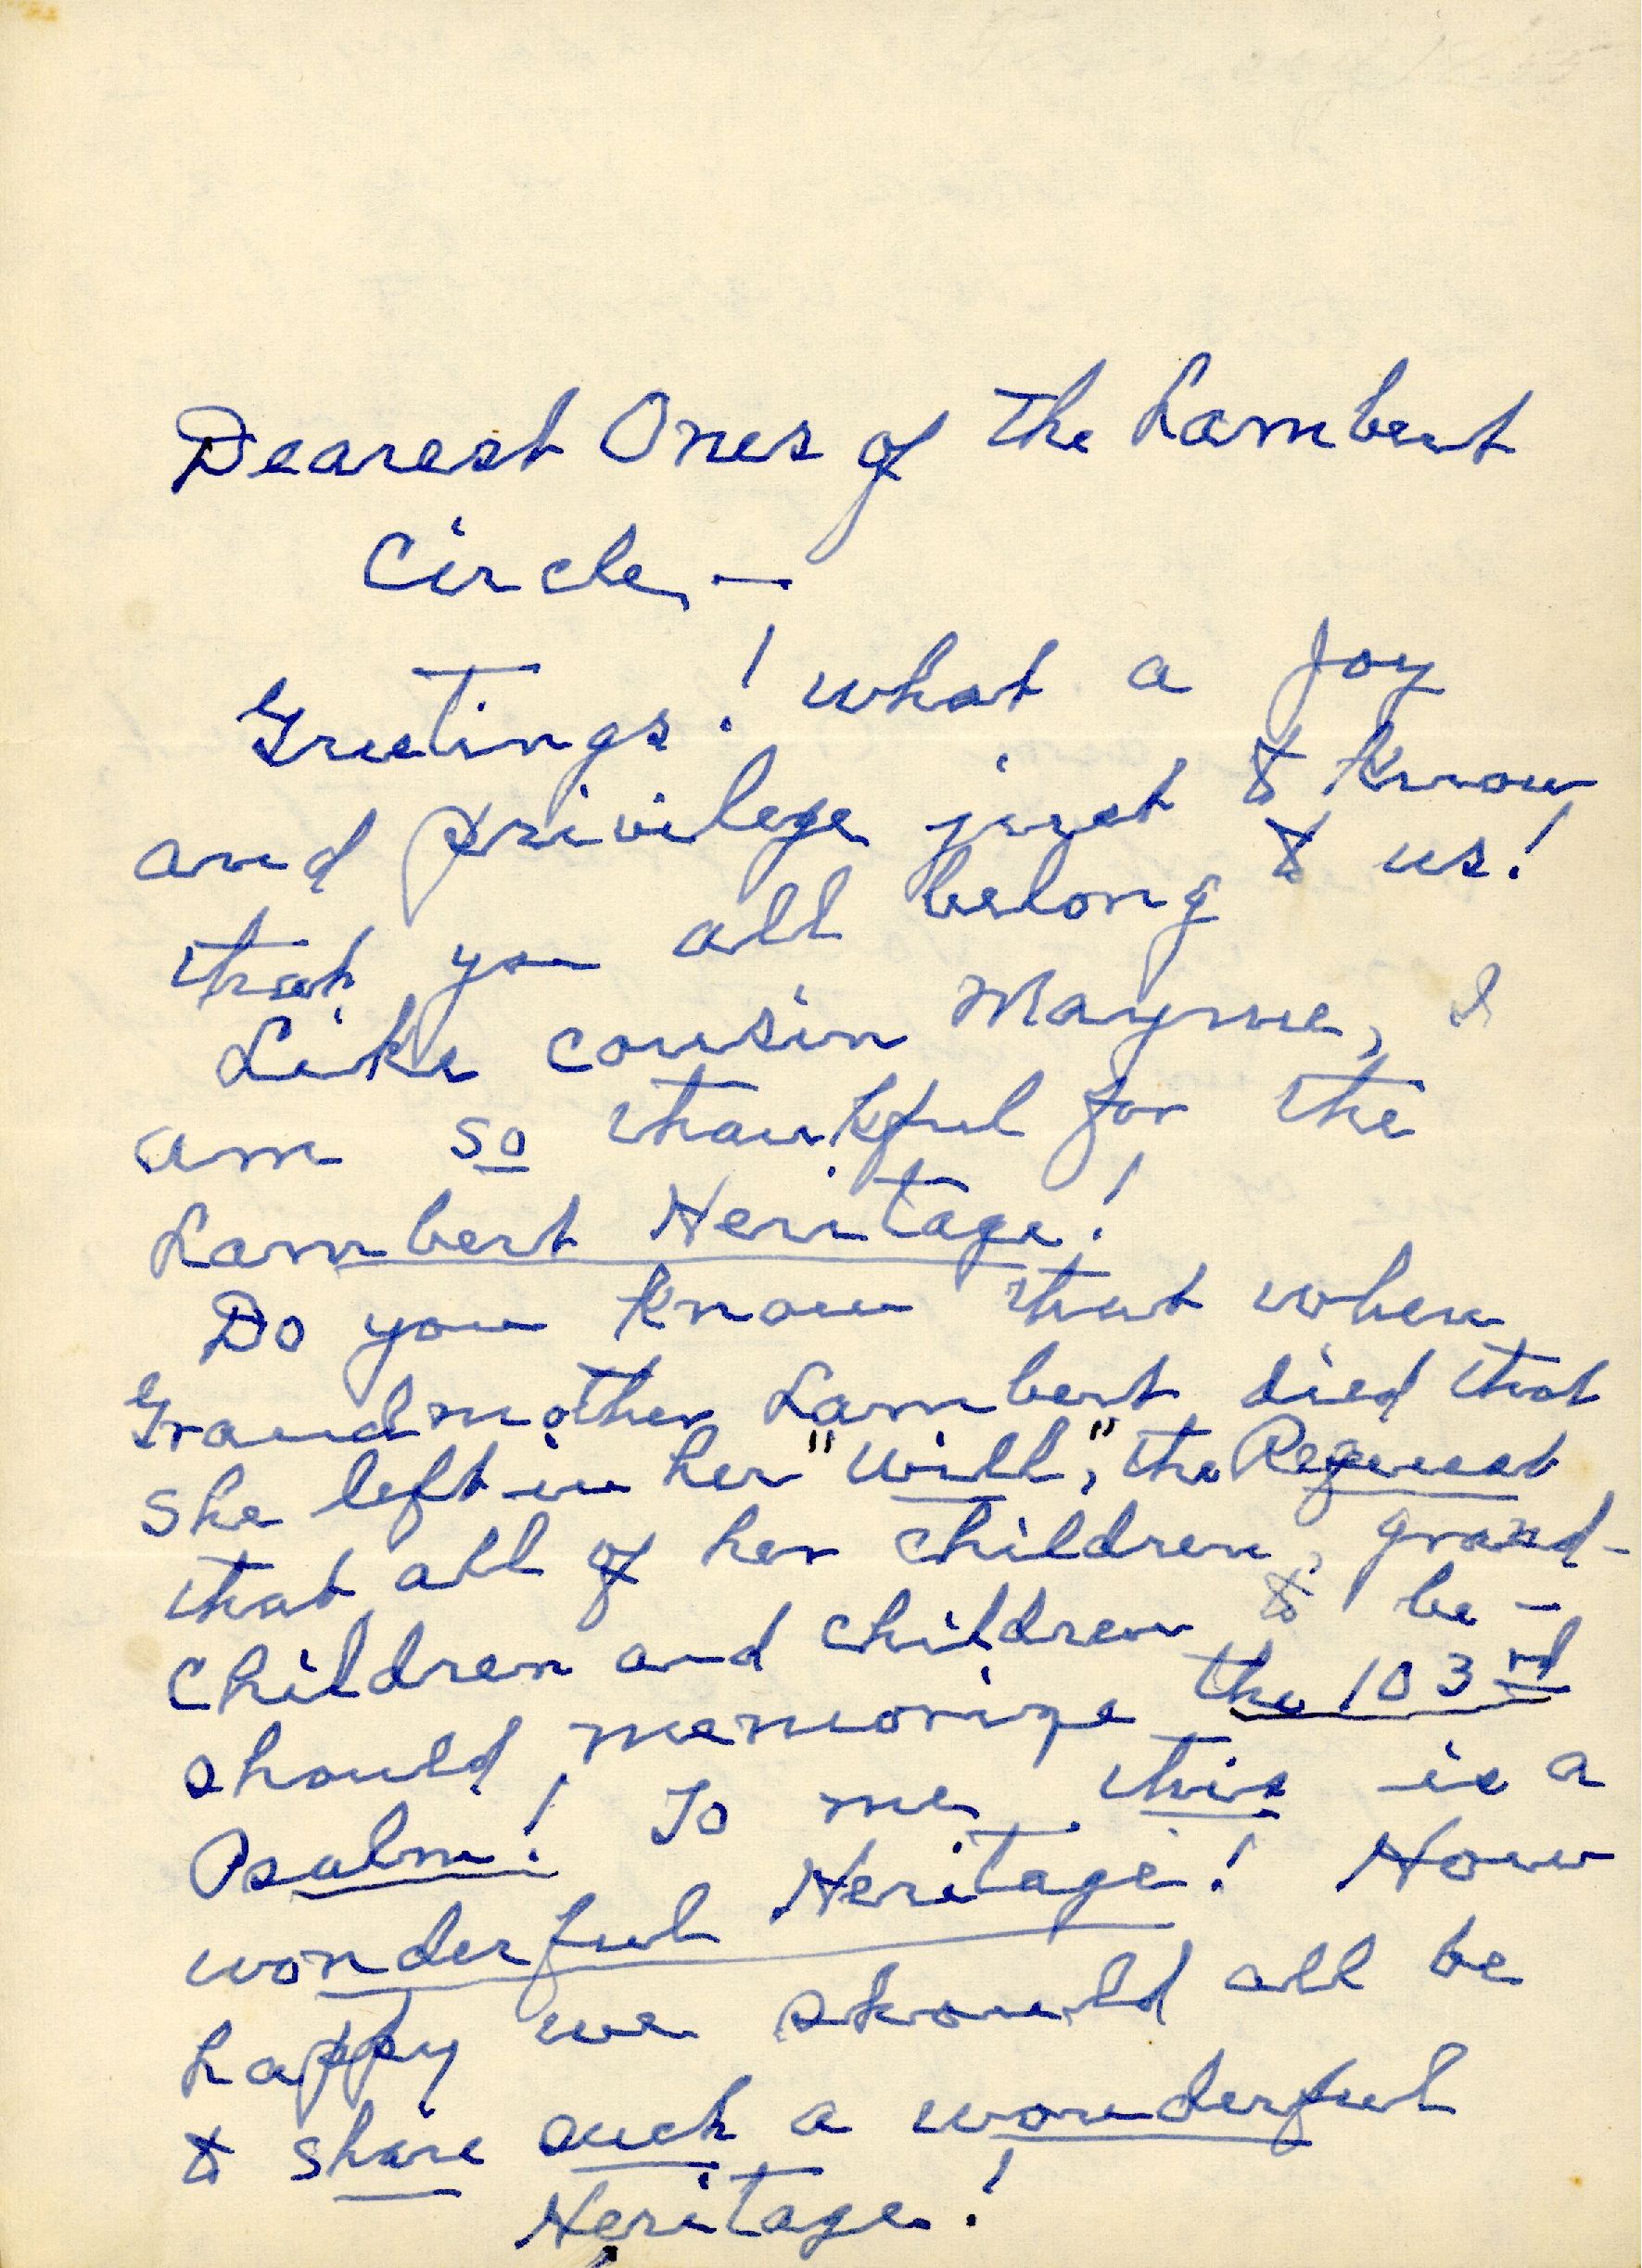 Dearest Ones of the Lambert
Circle, —
Greetings! What a joy
and privilege just to know
that you all belong to us!
Like cousin Mayme, I
am so thankful for the
Lambert Heritage!
Do you know that when
Grandmother Lambert died that
she left in her "Will", the Request
that all of her children, grand-
children and children to be —
should memorize the 103rd
Psalm! To me, this is a
wonderful Heritage! How
happy we should all be
to share such a wonderful
Heritage!